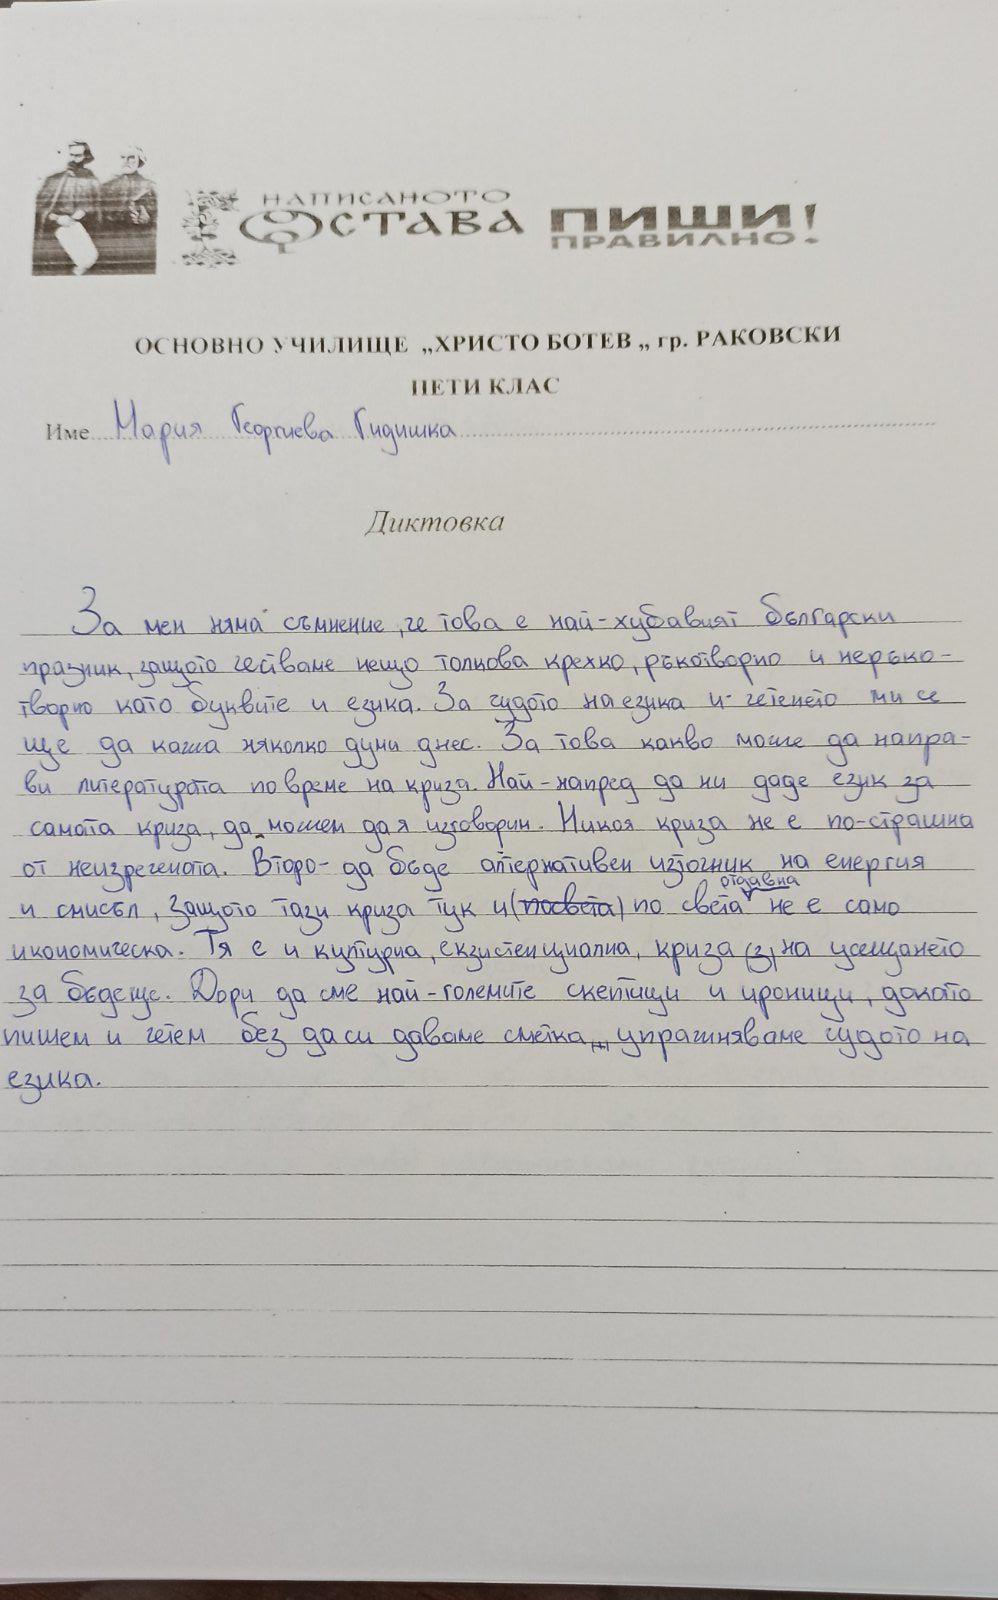 НАПИСАНОТО
ОСТАВА ПИШИ
ПРАВИЛНО!
ОСНОВНО УЧИЛИЩЕ „ХРИСТО БОТЕВ „ гр. РАКОВСКИ
ПЕТИ КЛАС
Име Мария Георгиева Гидишка
Диктовка
За мен няма съмнение, че това е най-хубавият български
празник, защото честваме нещо толкова крехко, ръкотворно и неръко-
творно като буквите и езика. За чудото на езика и четенето ми се
ще да кажа няколко думи днес. За това какво може да напра-
ви литературата по време на криза. Най-напред да ни даде език за
самата криза, да можем да я изговорим. Никоя криза не е по-страшна
от неизречената. Второ- да бъде алтернативен източник на енергия
отдавна
и смисъл, защото тази криза тук и (посвета) по света не е само
икономическа. Тя е и културна, екзистенциална, криза (з) на усещането
за бъдеще. Дори да сме най-големите скептици и ироници, докато
пишем и четем без да си даваме сметка, упражняваме чудото на
езика.